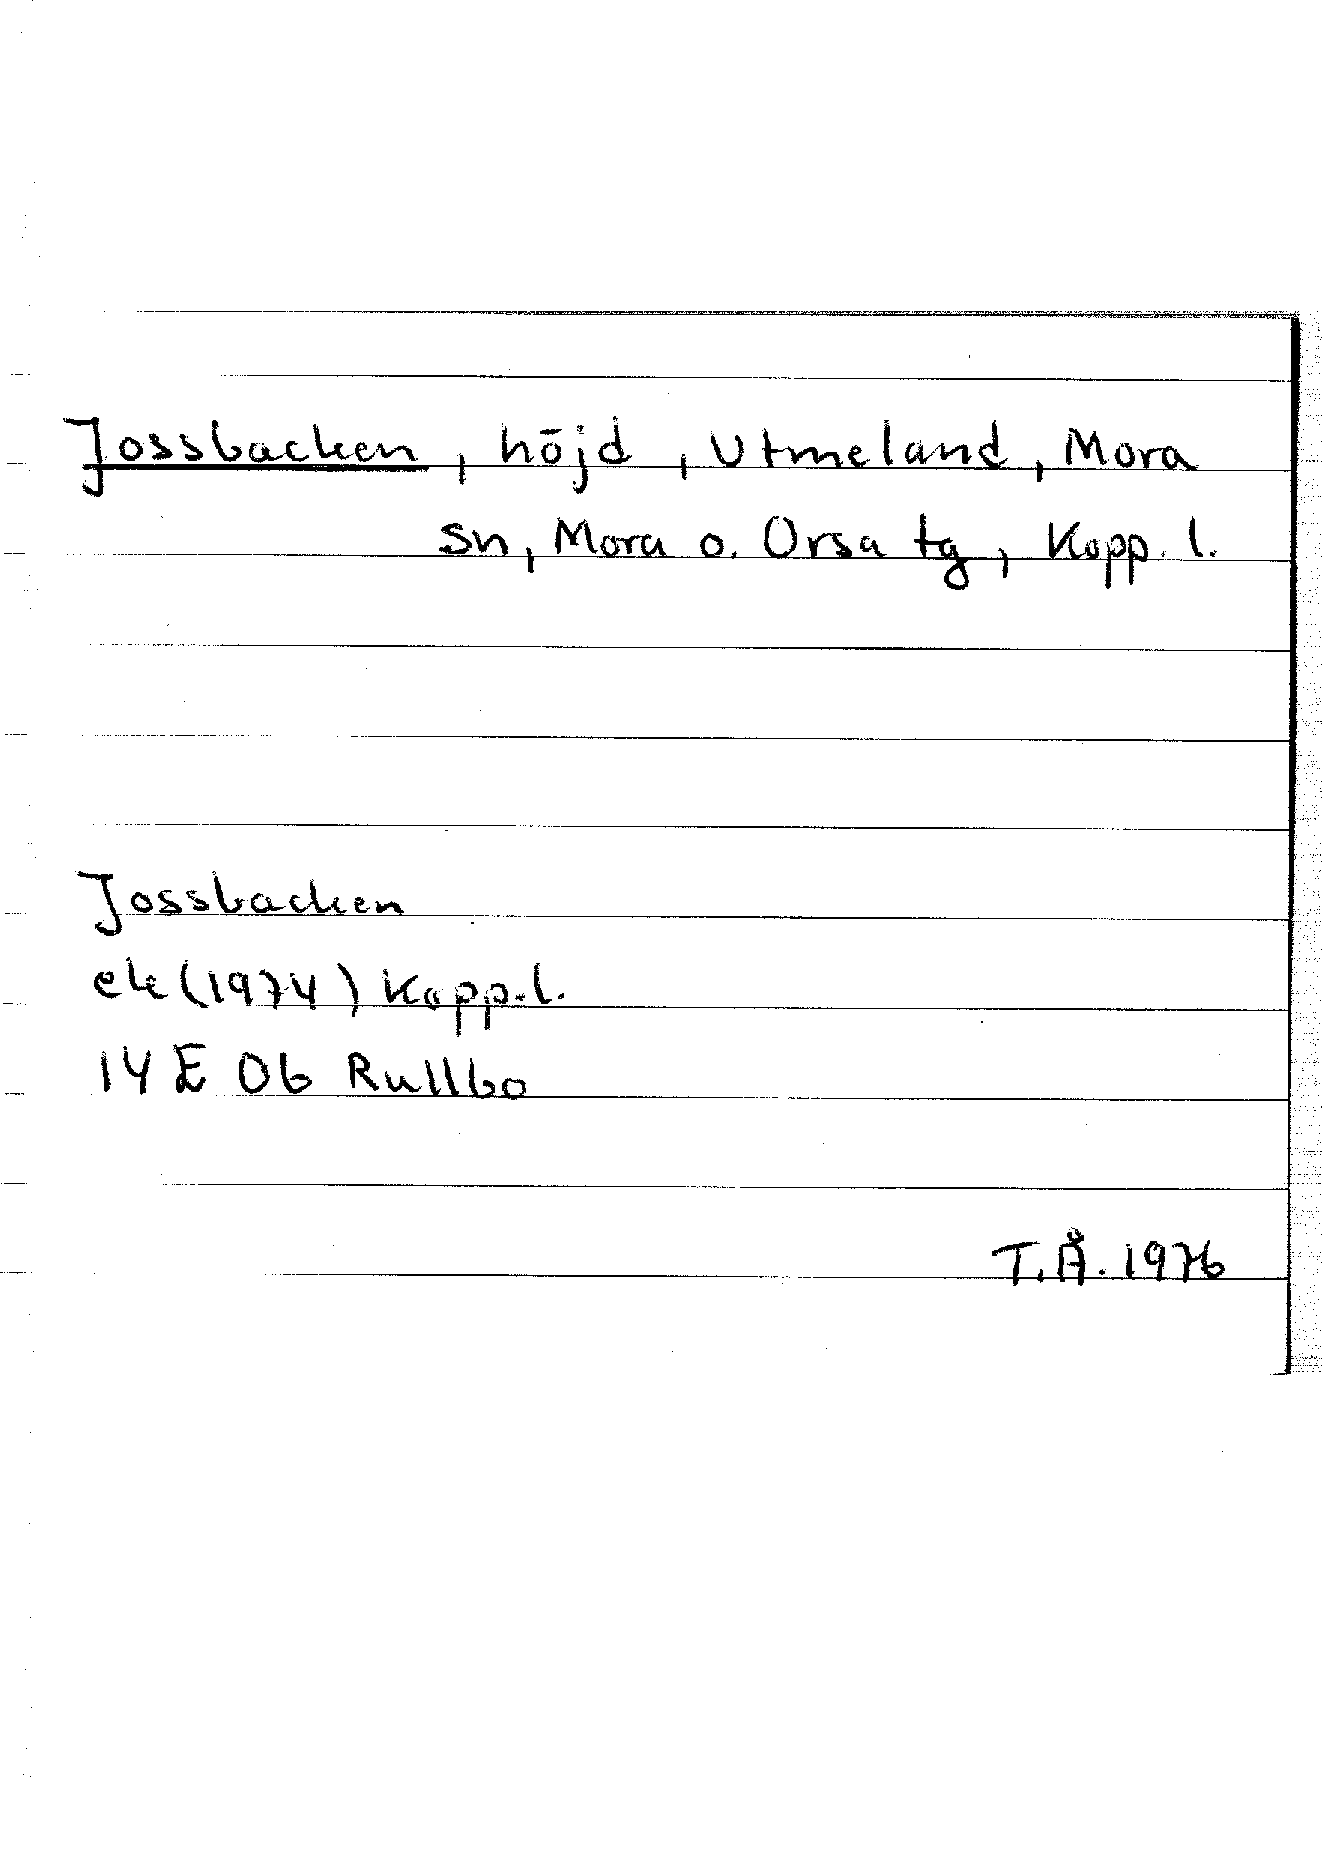 Jossbacken, höjd, Utmeland, Mora
sn, Mora o. Orsa tg, Kopp. l.
Jossbacken
ek (1974) Kopp. l.
14 E 0b Rullbo
T.Å. 1976